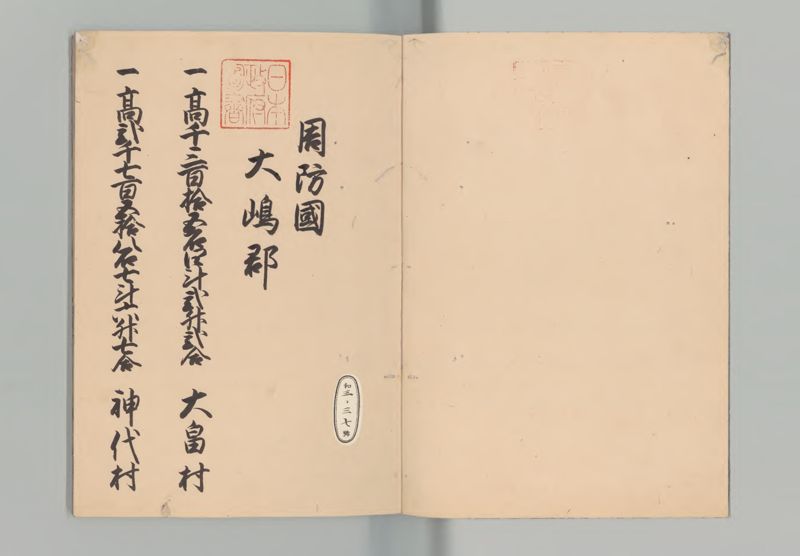 周防國
大嶋郡
日本
政府
圖書
一高千二百拾五石四斗弐升弐合 大畠村
一高弐千七百五拾八石七斗六升七合 神代村
和
三七號